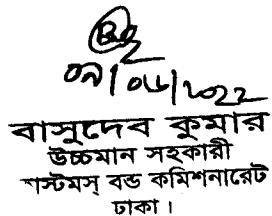 ০৯/০৬/২০২২
বাসুদেব কুমার
উচ্চমান সহকারী
স্টমস্ বন্ড কমিশনারেট
ঢাকা।